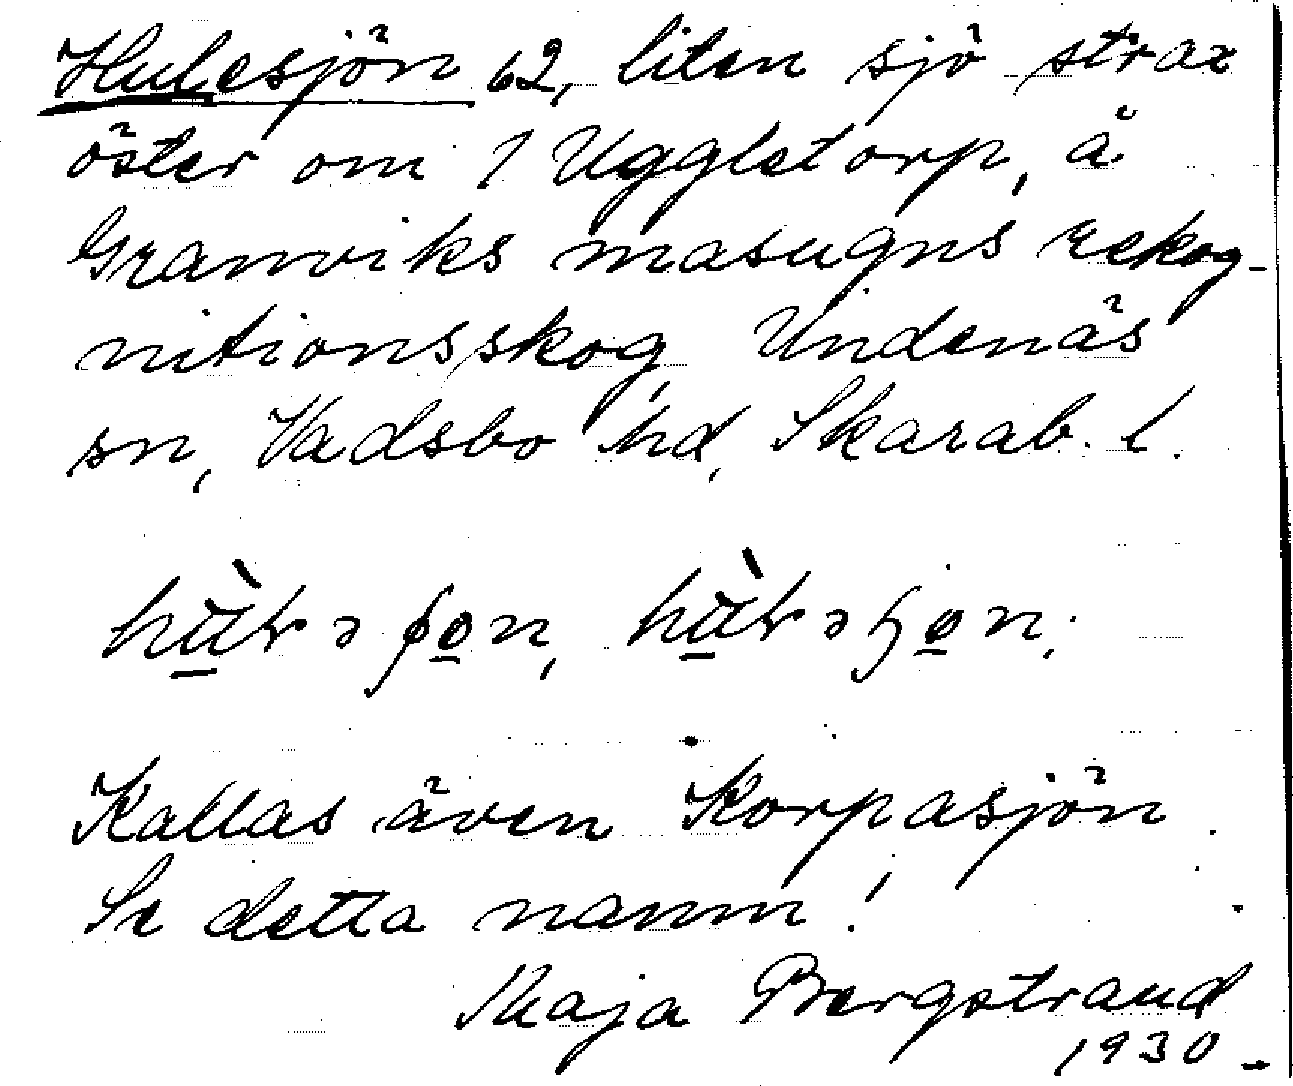 Hulesjön 62, liten sjö strax
öster om 1 Uggletorp, å
Granviks masugns rekog-
nitionsskog, Undenäs
sn, Vadsbo hd, Skarab. l.
Kallas även Korpasjön.
Se detta namn!
Maja Bergstrand
1930